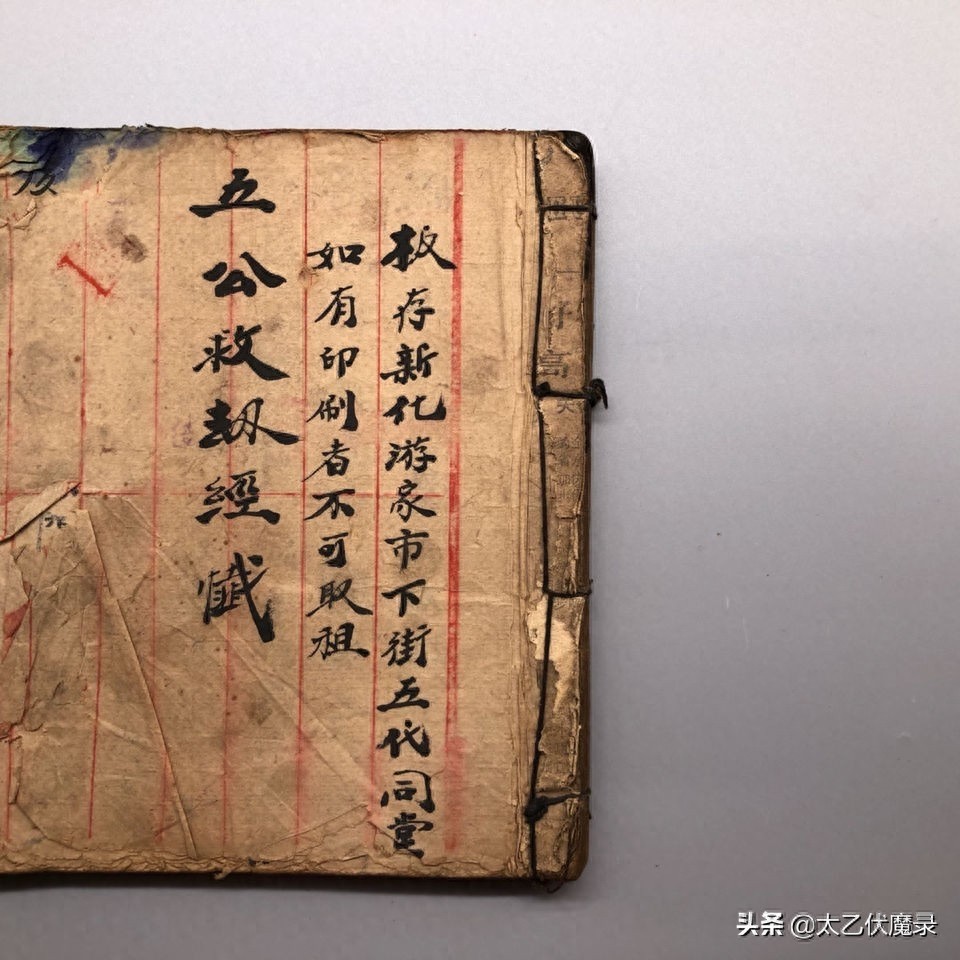 板存新化游家市下街五代同堂
如有印刷者不可取租
五公救劫經懺
頭条 @太乙伏魔录